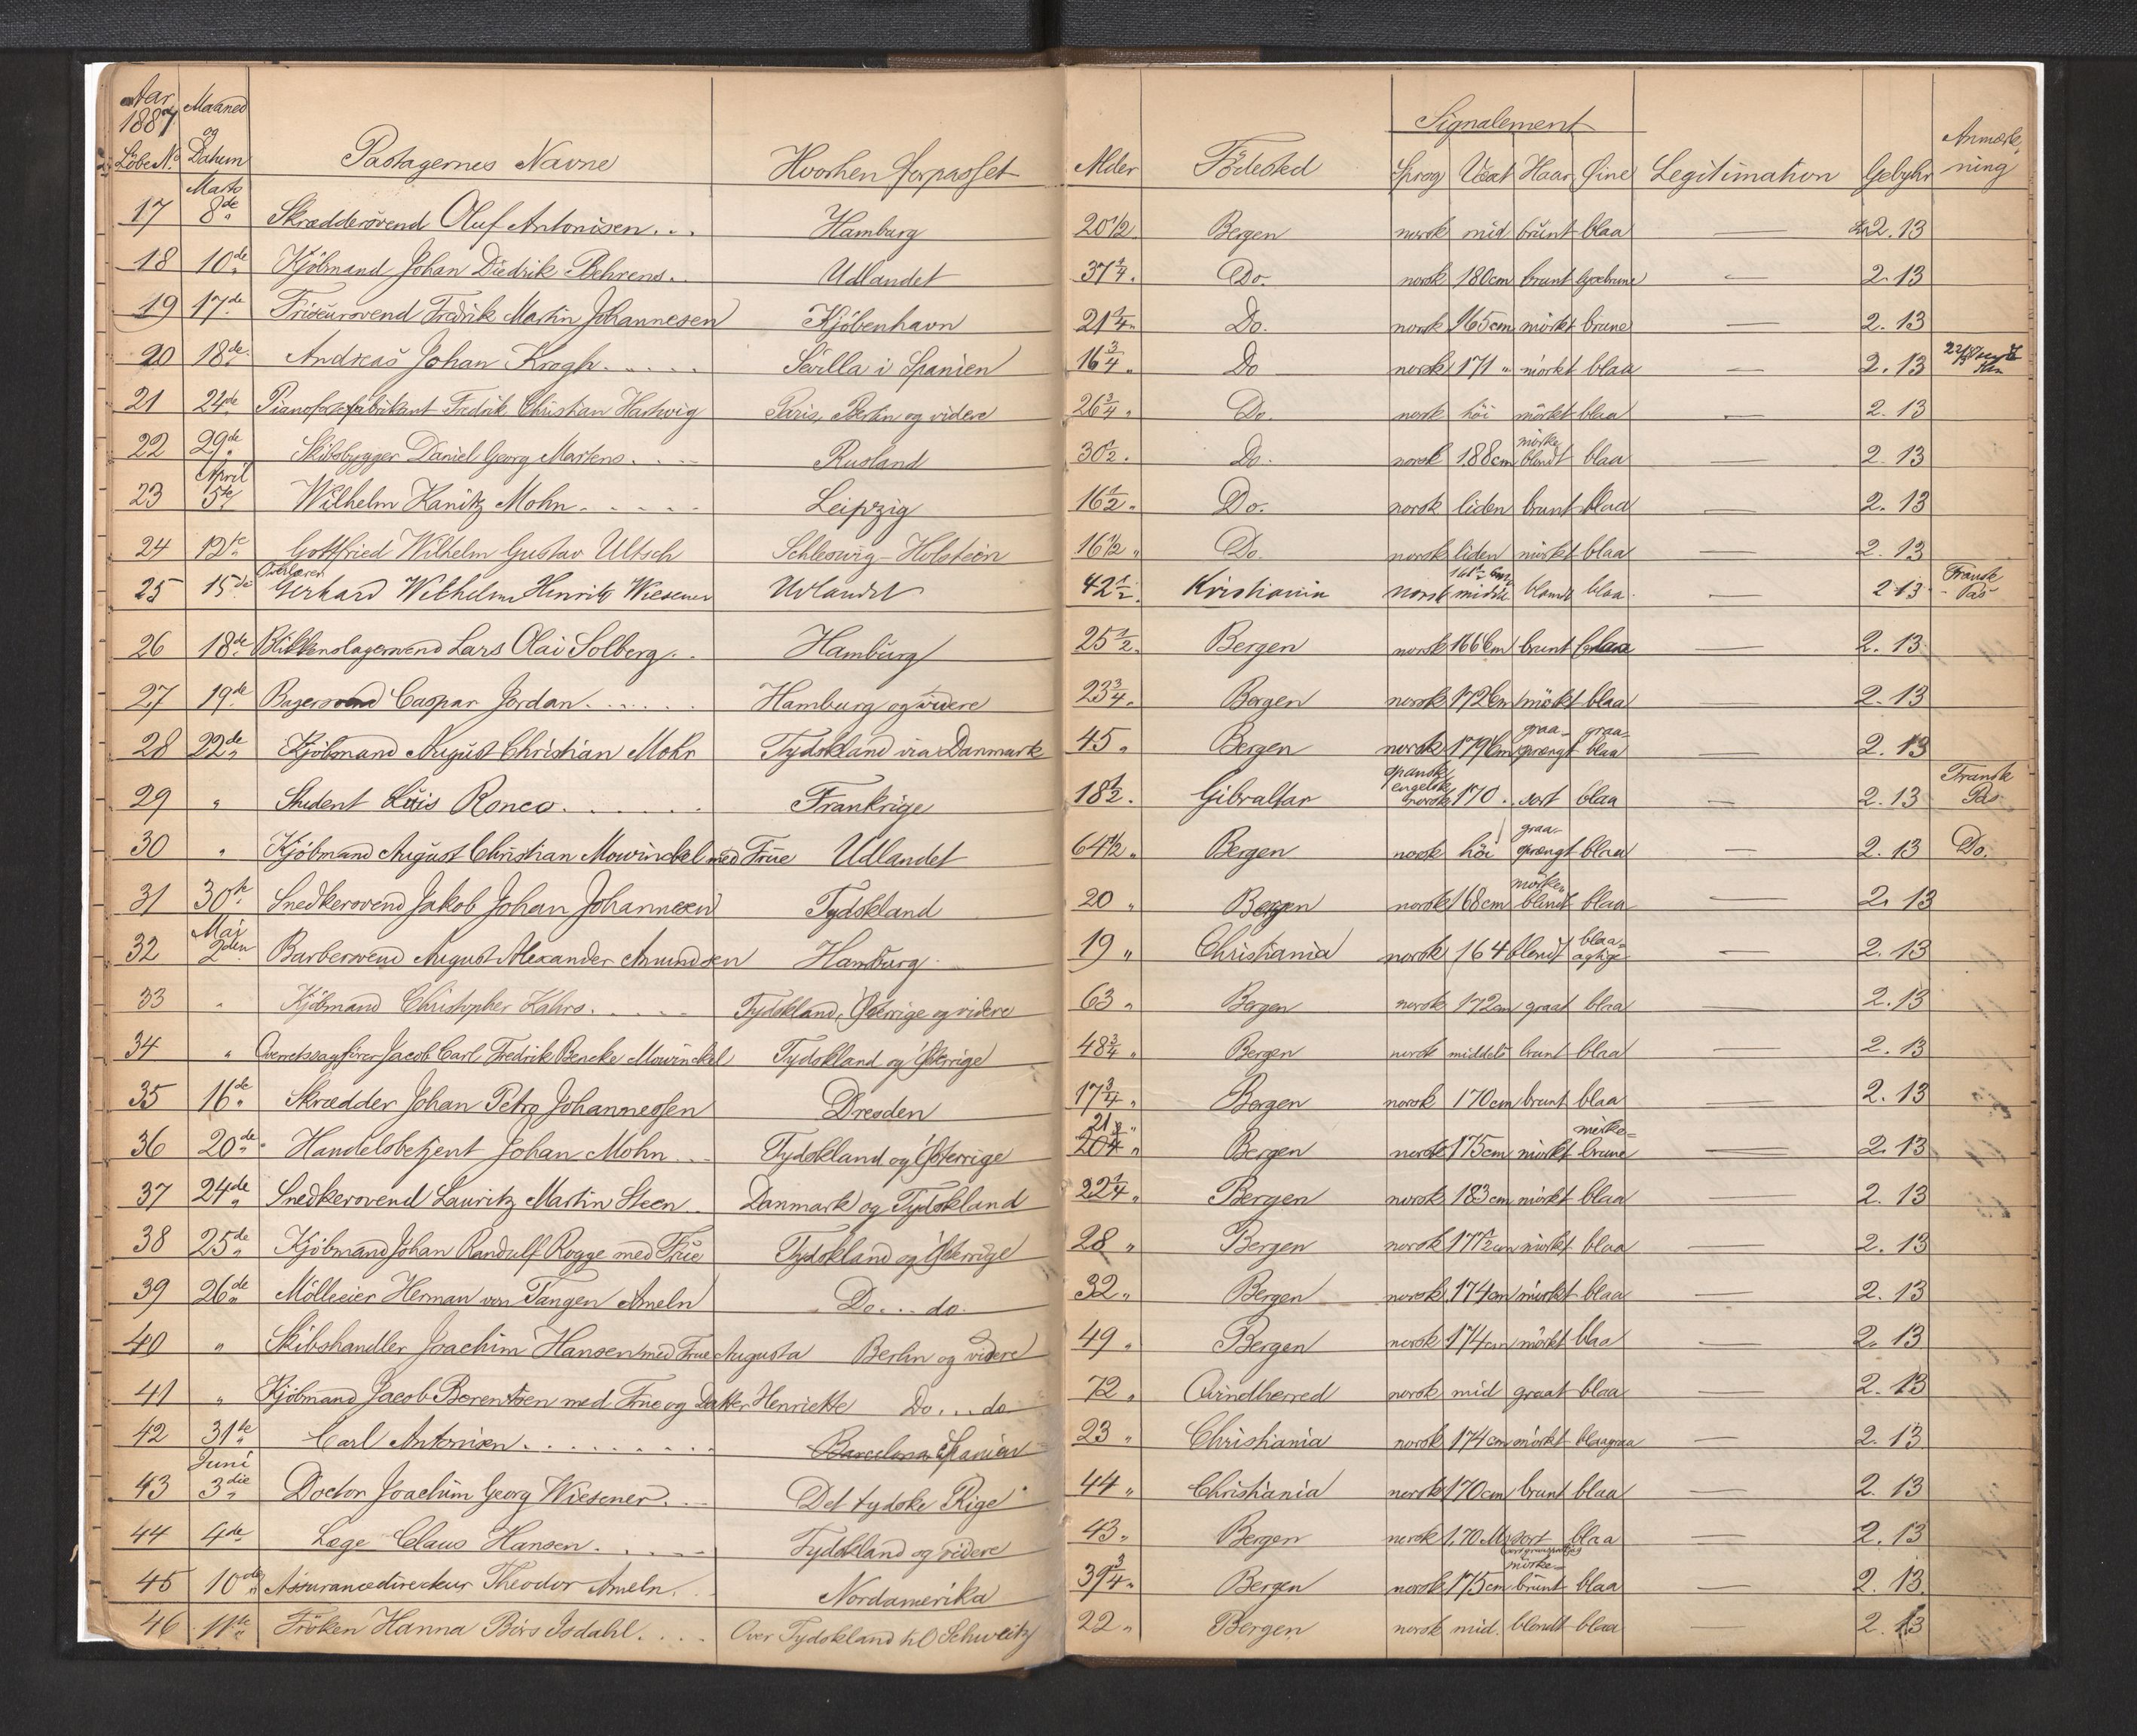 Aar 1887 Maaned og Datum
Løbe No. Passagernes Navne Hvorhen forpasset Alder Födested Signalement Sprog Vext Haar Øine Legitimation Gebyhr Anmærkning
Marts
17 8de Skræddersvend Oluf Antonisen... Hamburg 20 1/2 Bergen norsk mid brunt blaa — 2.13
18 10de Kjöbmand Johan Diedrik Behrens.. Udlandet 37 1/4. Do. norsk 180cm brunt — 2.13
19 17de Friseursvend Fredrik Martin Johannesen Kjöbenhavn 21 1/4 Do. norsk 165cm mörkt brune — 2.13
20 18de Andreas Johan Krogh..... Sevilla i Spanien 16 3/4 Do norsk 171 " mörkt blaa — 2.13
21 24de Pianofortefabrikant Fredrik Christian Hartwig Paris, Berlin og videre 26 3/4 " Do. norsk höi mörkt blaa — 2.13
22 29de Skibsbygger Daniel Georg Martens.... Rusland 30 1/2. Do. norsk 188cm mörke blondt blaa — 2.13
April
23 5te Wilhelm Kanitz Mohn..... Leipzig 16 1/2 " Do. norsk liden brunt blaa — 2.13
24 12te Gottfried Wilhelm Gustav Ultsch Schleswig-Holstein 16 1/2 " Do. norsk liden mörkt blaa — 2.13
25 15de Overlærer Gerhard Wilhelm Henrik Wiesener Udlandet 42 1/2. Kristiania norsk middel blondt blaa — 2 13 Fransk Pas
26 18de Blikkenslagersvend Lars Olai Solberg.. Hamburg 25 1/2. Bergen norsk 166cm brunt blaa — 2.13
27 19de Bagersvend Caspar Jordan...... Hamburg og videre 23 3/4. Bergen norsk 172cm mörkt blaa — 2.13
28 22de Kjöbmand August Christian Mohr Tydskland via Danmark 45 " Bergen norsk 179cm graasprængt graablaa — 2.13
29 " Student Luis Ronco...... Frankrige 18 1/2. Gibraltar spansk engelsk norsk 170. sort blaa — 2.13 Fransk Pas
30 " Kjöbmand August Christian Mowinckel med Frue Udlandet 64 1/2 " Bergen norsk höi graasprængt blaa — 2.13 Do.
31 30te Snedkersvend Jakob Johan Johannesen Tydskland 20 " Bergen norsk 168cm mörkeblondt blaa — 2.13
Mai
32 2den Barbersvend August Alexander Amundsen Hamburg 19 " Christiania norsk 164 blondt blaaagtige — 2.13
33 " Kjöbmand Christopher Kahrs..... Tydskland, Østerrige og videre 63 " Bergen norsk 172cm graat blaa — 2.13
34 " Overretssagförer Jacob Carl Fredrik Beneke Mowinckel Tydskland og Østerrige 48 3/4 " Bergen norsk middels brunt blaa — 2.13
35 16de Skrædder Johan Petry Johannessen Dresden 17 3/4 " Bergen norsk 170cm brunt blaa — 2.13
36 20de Handelsbetjent Johan Mohn... Tydskland og Østerrige 21 Bergen norsk 175cm mörkt mörkebrune — 2.13
37 24de Snedkersvend Lauritz Martin Steen.. Danmark og Tydskland 22 1/4 " Bergen norsk 183cm mörkt blaa — 2.13
38 25de Kjöbmand Johan Randulf Rogge med Frue Tydskland og Østerrige 28 " Bergen norsk 177 1/2cm mörkt blaa — 2.13
39 26de Mölleeier Herman von Tangen Ameln Do... do. 32 " Bergen norsk 174cm mörkt blaa — 2.13
40 " Skibshandler Joachim Hansen med Frue Augusta Berlin og videre 49 " Bergen norsk 174cm mörkt blaa — 2.13
41 " Kjöbmand Jacob Berentsen med Frue og Datter Henriette Do... do 72 " Qvindherred norsk mid graat blaa — 2.13
42 31te Carl Antonisen.......... Barcelona Spanien 23 " Christiania norsk 174cm mörkt blaagraa — 2.13
Juni
43 3die Doctor Joachim Georg Wiesener... Det tydske Rige 44 " Christiania norsk 170cm brunt blaa — 2.13
44 4de Læge Claus Hansen..... Tydskland og videre 43 " Bergen norsk 1,70 M sort blaa — 2.13
45 10de Assurancedirekteur Theodor Ameln.. Nordamerika 39 3/4 " Bergen norsk 175cm mörkebrunt blaa — 2.13
46 11te Fröken Hanna Börs Isdahl.... Over Tydskland til Schweitz 22 " Bergen norsk mid. blondt blaa — 2.13